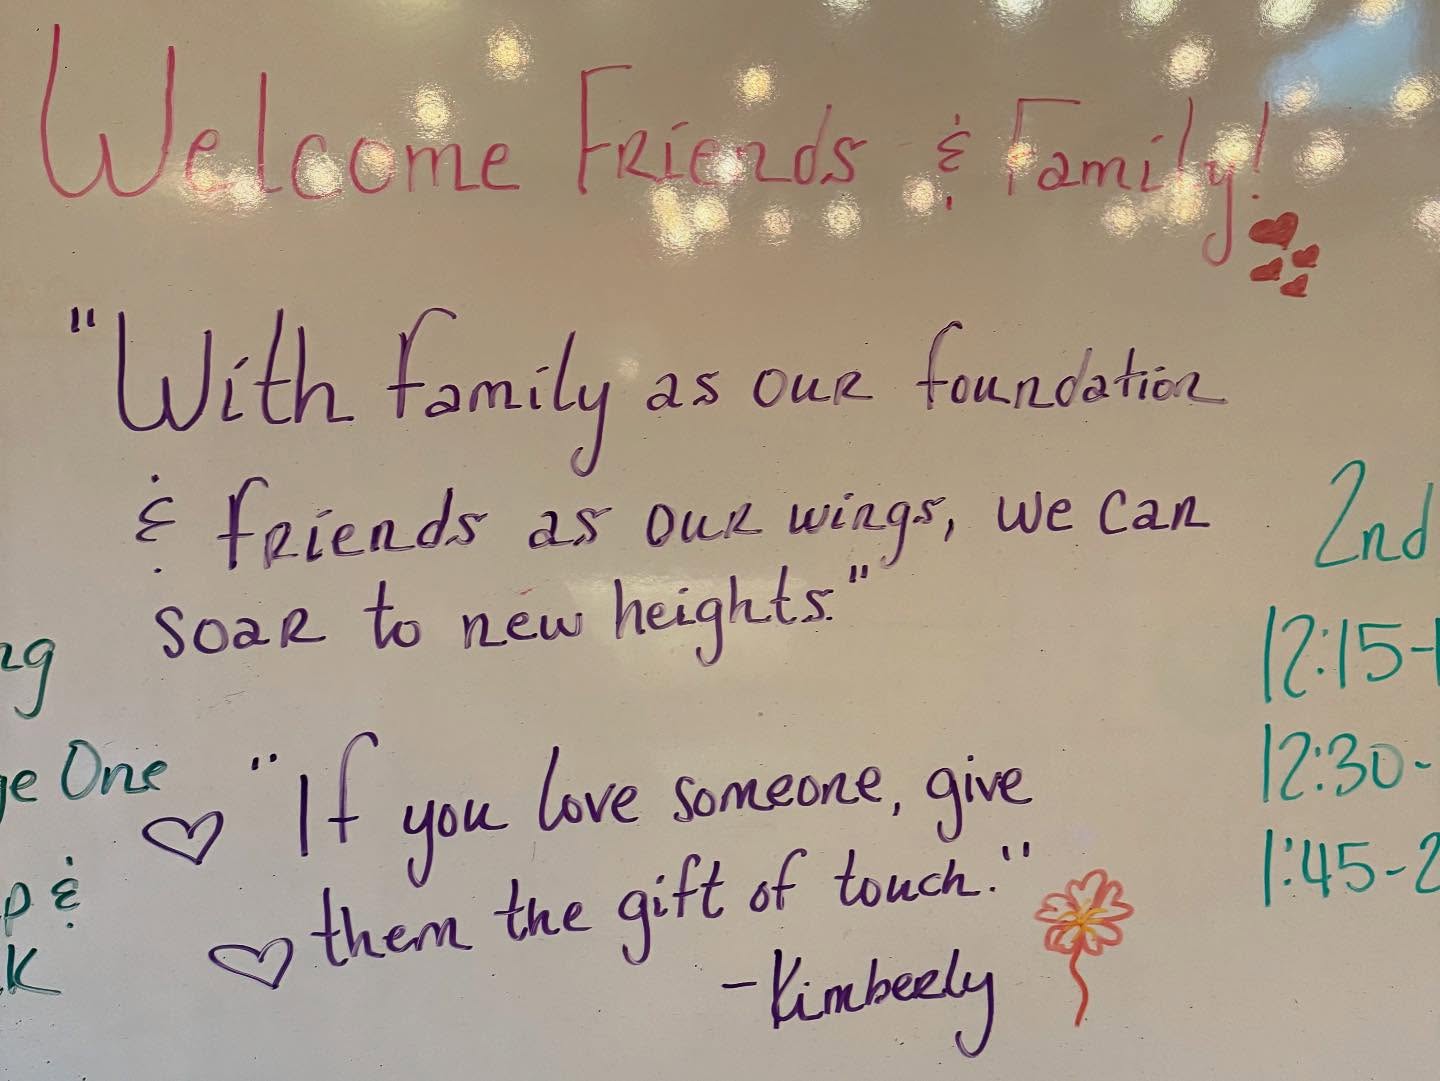 Welcome Friends & Family!
"With family as our foundation
& friends as our wings, we can
soar to new heights."
"If you love someone, give
them the gift of touch."
-Kimberly
ng
ge One
p &
K
2nd
12:15-1
12:30-
1:45-2